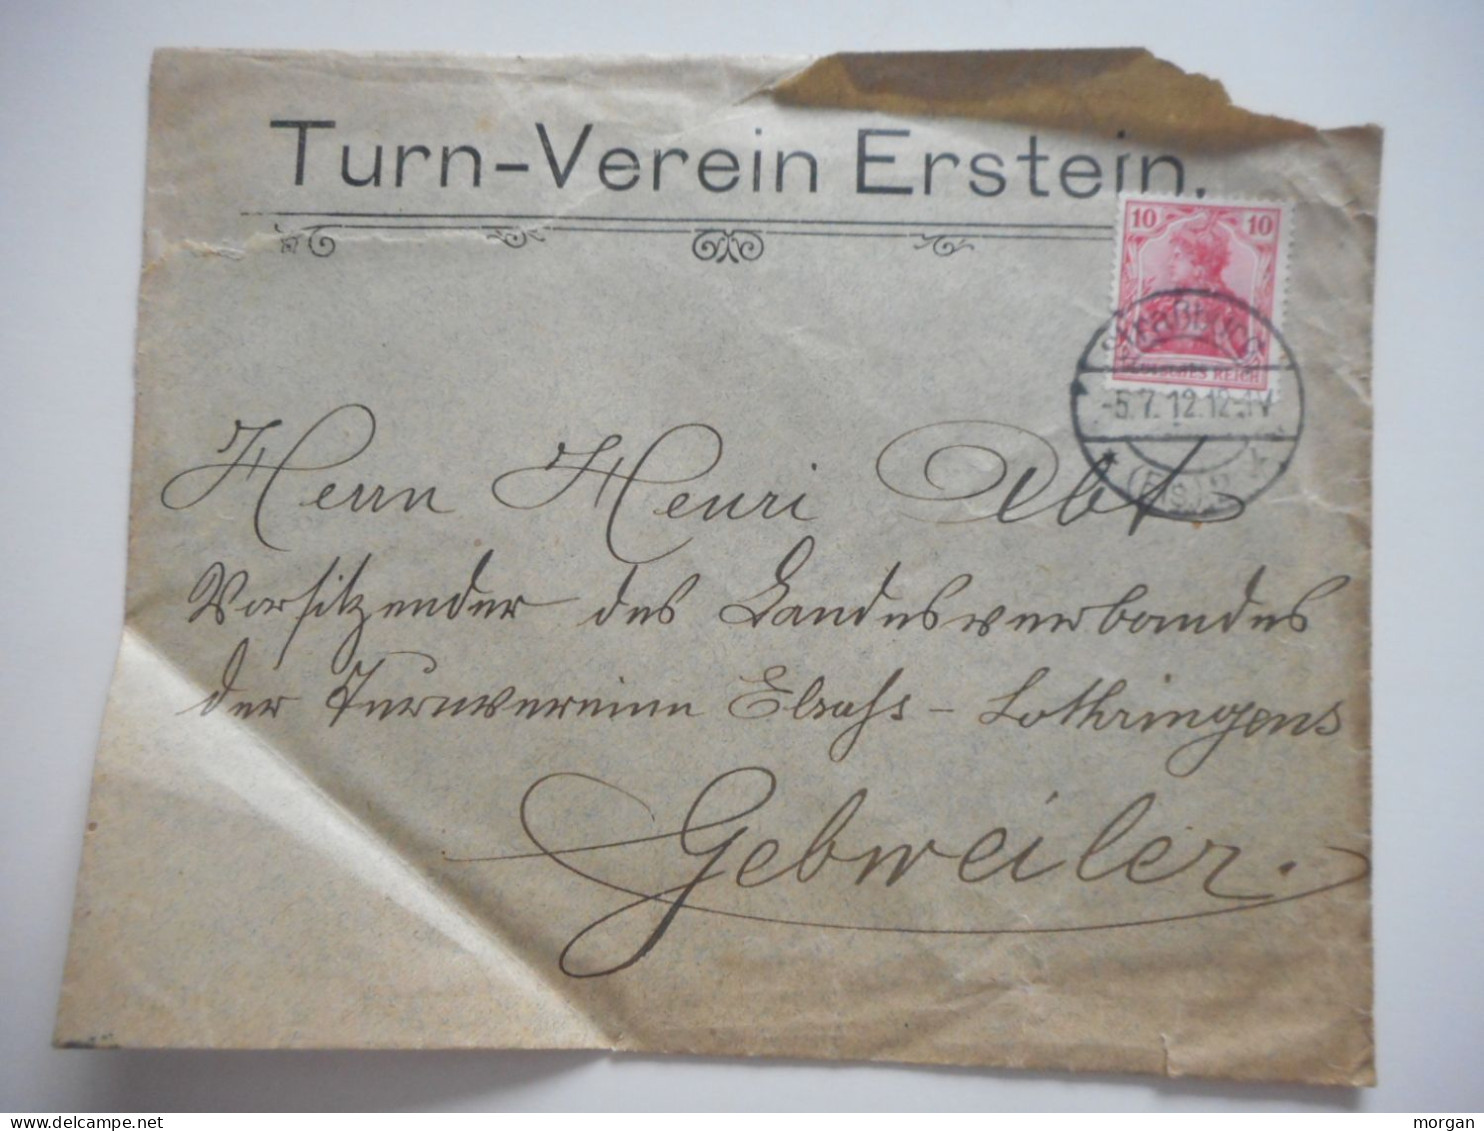 Turn-Verein Erstein.
10 10
DEUTSCHES REICH
Straßburg
-5.7.12.12-1V
(Els) 2
Herrn Henri Abt
Vorsitzender des Landesverbandes
der Turnvereine Elsaß - Lothringens
Gebweiler.
delcampe.net
morgan